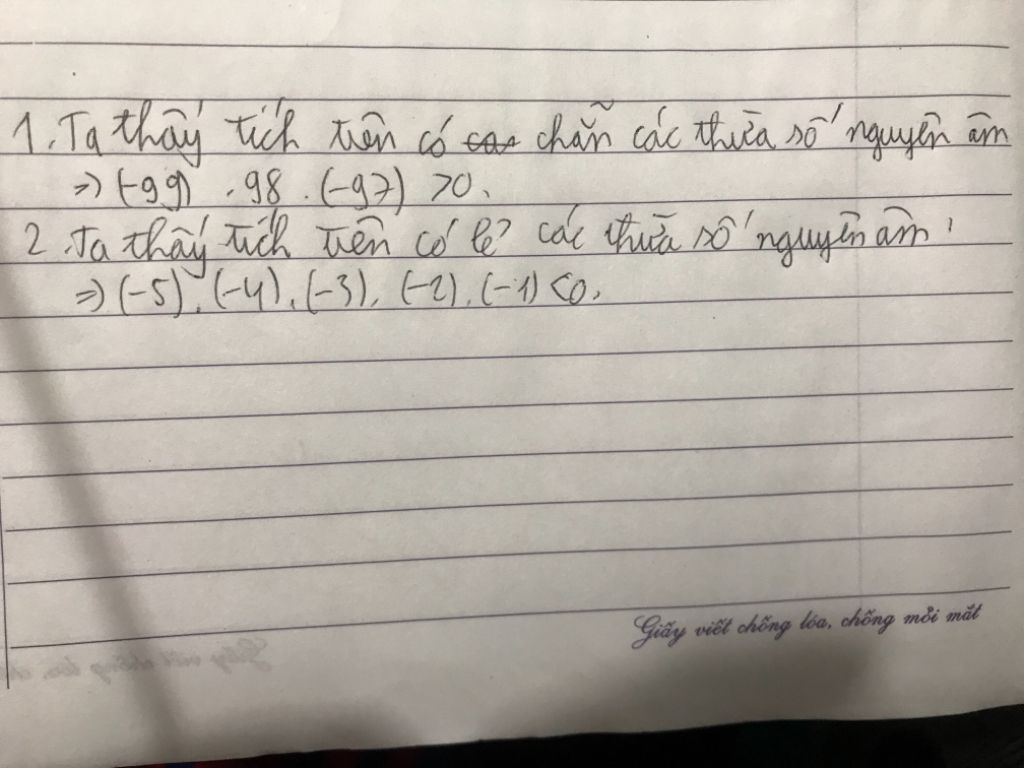 1. Ta thấy tích trên có chẵn các thừa số nguyên âm
=> (-99) . 98 . (-97) > 0.
2. Ta thấy tích trên có lẻ các thừa số nguyên âm.
=> (-5) . (-4) . (-3) . (-2) . (-1) < 0.
Giấy viết chống lóa, chống mỏi mắt